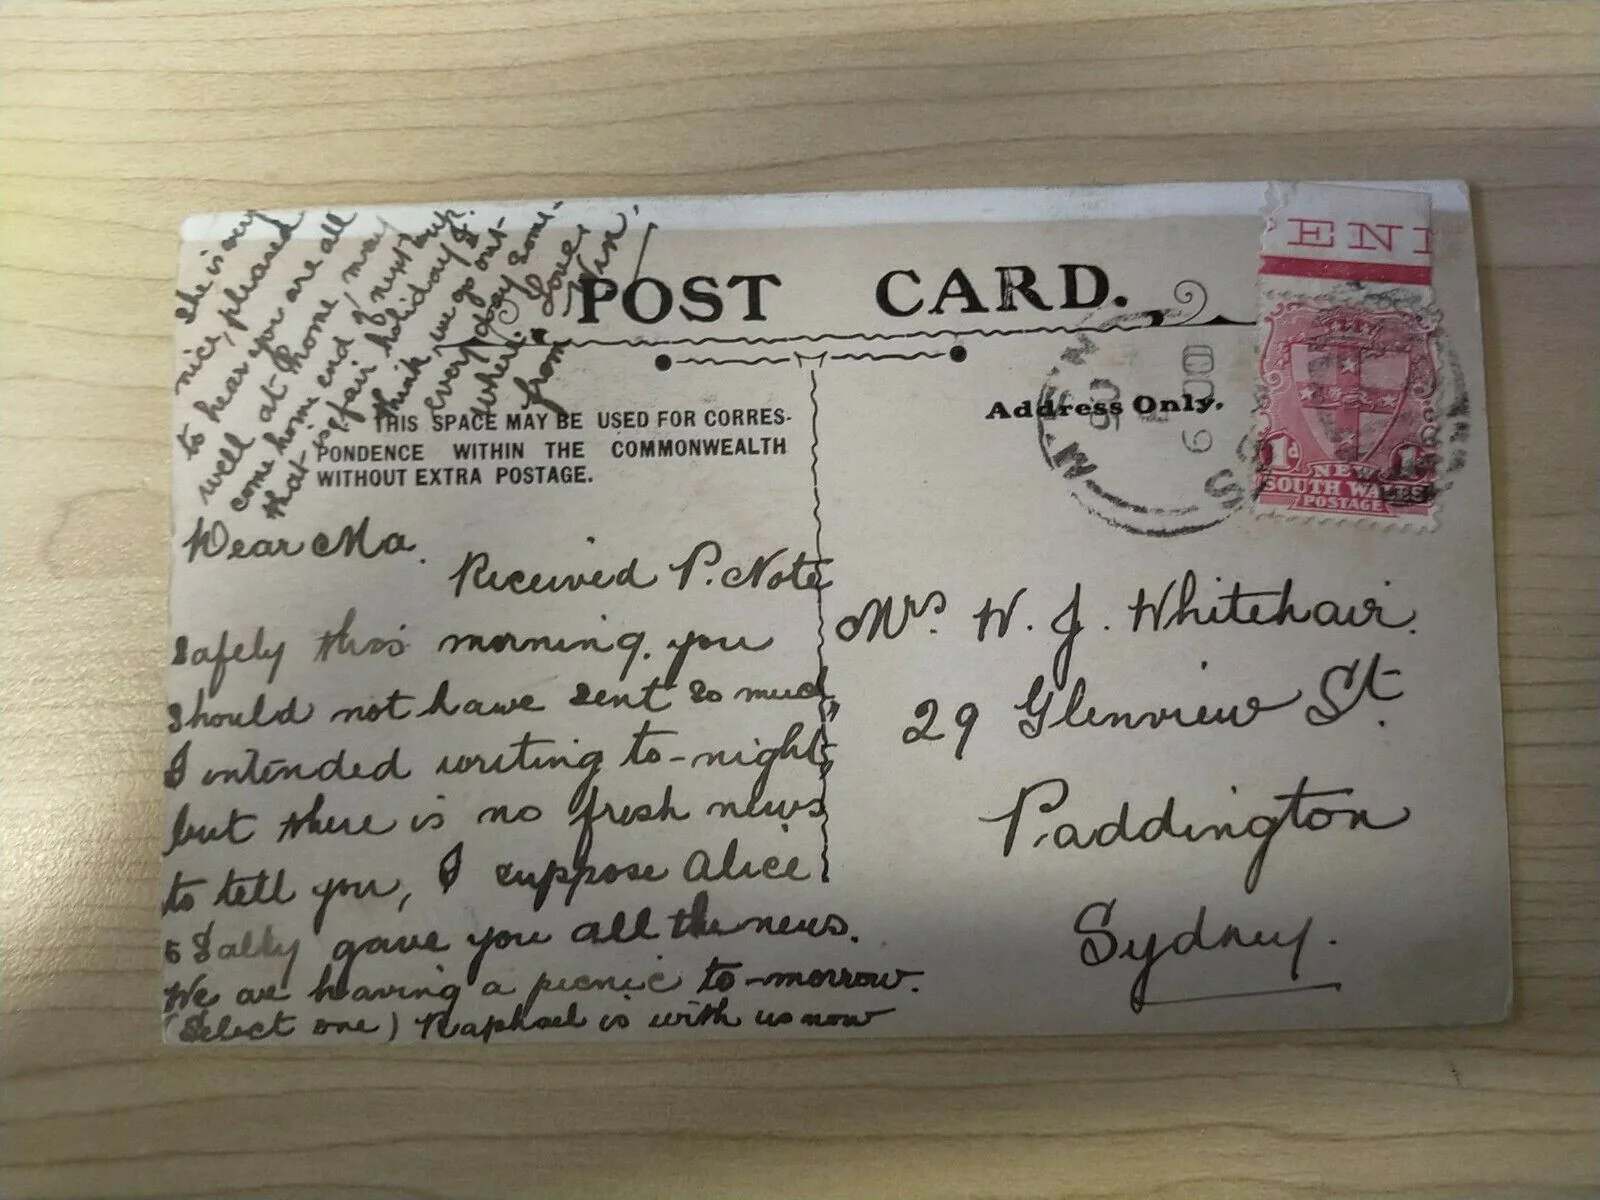 POST CARD.
THIS SPACE MAY BE USED FOR CORRES-
PONDENCE WITHIN THE COMMONWEALTH
WITHOUT EXTRA POSTAGE.
Address Only.
Dear Ma.
Received P. Note
safely this morning. you
should not have sent so much,
I intended writing to-night,
but there is no fresh news
to tell you, I suppose Alice
& Sally gave you all the news.
We are having a picnic to-morrow.
(Select one) Raphael is with us now
She is very
nice, pleased
to hear you are all
well at home, may
come home end of next week
that is fair holiday I
think, we go out
every day some-
where. Love,
from Nin.
Mrs. W. J. Whitehair.
29 Glenview St.
Paddington
Sydney.
EN
1d 1d
NEW
SOUTH WALES
POSTAGE